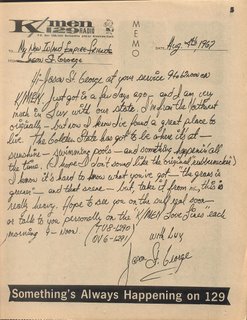 5
K/men
129 RADIO
MEMO
TO My New Inland Empire Friends
DATE Aug 4th 1967
FROM Jason St. George
Hi - Jason St. George at your service 9 to 12 noon on
K/MEN. Just got to a few days ago - and I am very
much in luv with our state. I'm from the Northwest
originally - but now I know I've found a great place to
live. The Golden State has got to be where it's at -
sunshine - swimming pools - and something happening all
the time. (I hope I don't sound like the original enthusiastic)
I know it's hard to know what you've got - the grass is
greener - and that scene - but, take it from me, this is
really heavy. Hope to see you on the surf real soon -
or talk to you personally on the K/MEN Love Lines each
morning 9 - Noon. (TU8-1290)
(OV6-1291)
with Luv,
Jason St. George
Something's Always Happening on 129